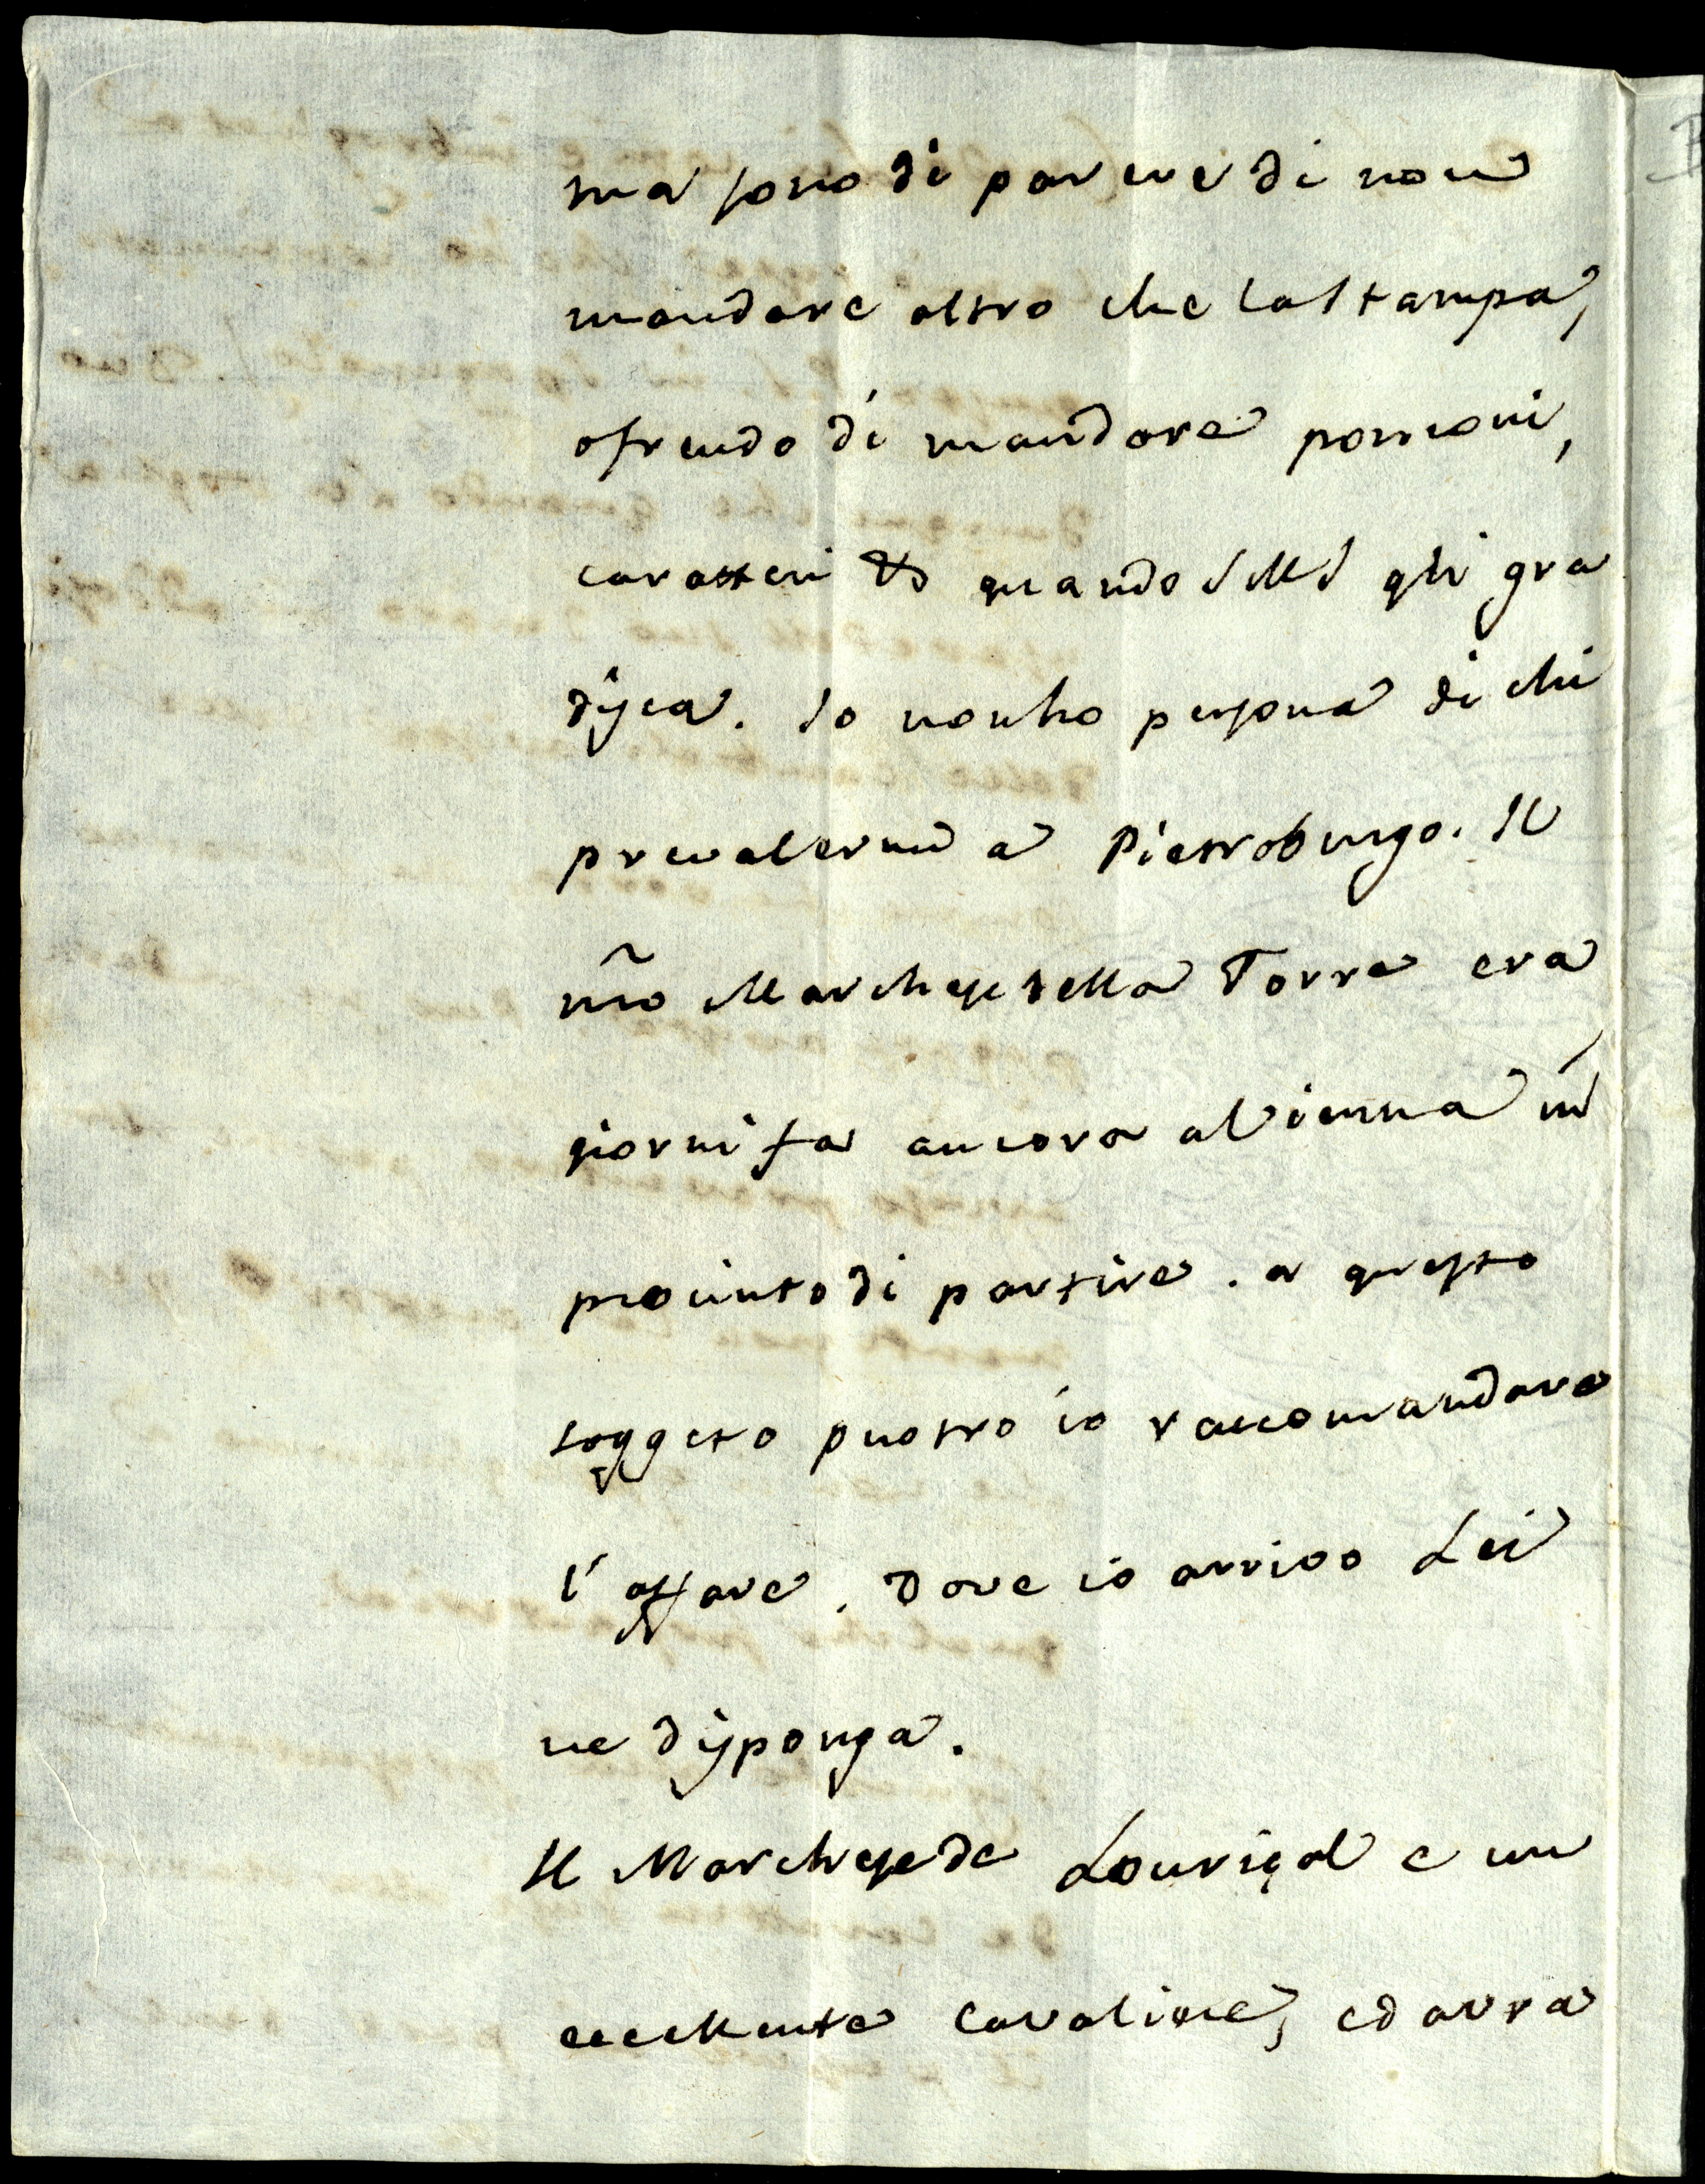 ma sono di parere di non
mandare altro che la stampa,
ofrendo di mandare ponzoni,
caratteri &c quando S M I gli gra
disca. Io non ho persona di chi
prevalermi a Pietroburgo. Il
mr̃o Marchese della Torre era
giorni fa ancora a Vienna in
procinto di partire. a questo
soggeto puotro io raccomandare
l'affare. Dove io arrivo Lei
ne disponga.
Il Marchese de Louriçal e un
eccellente Cavaliere, ed avra